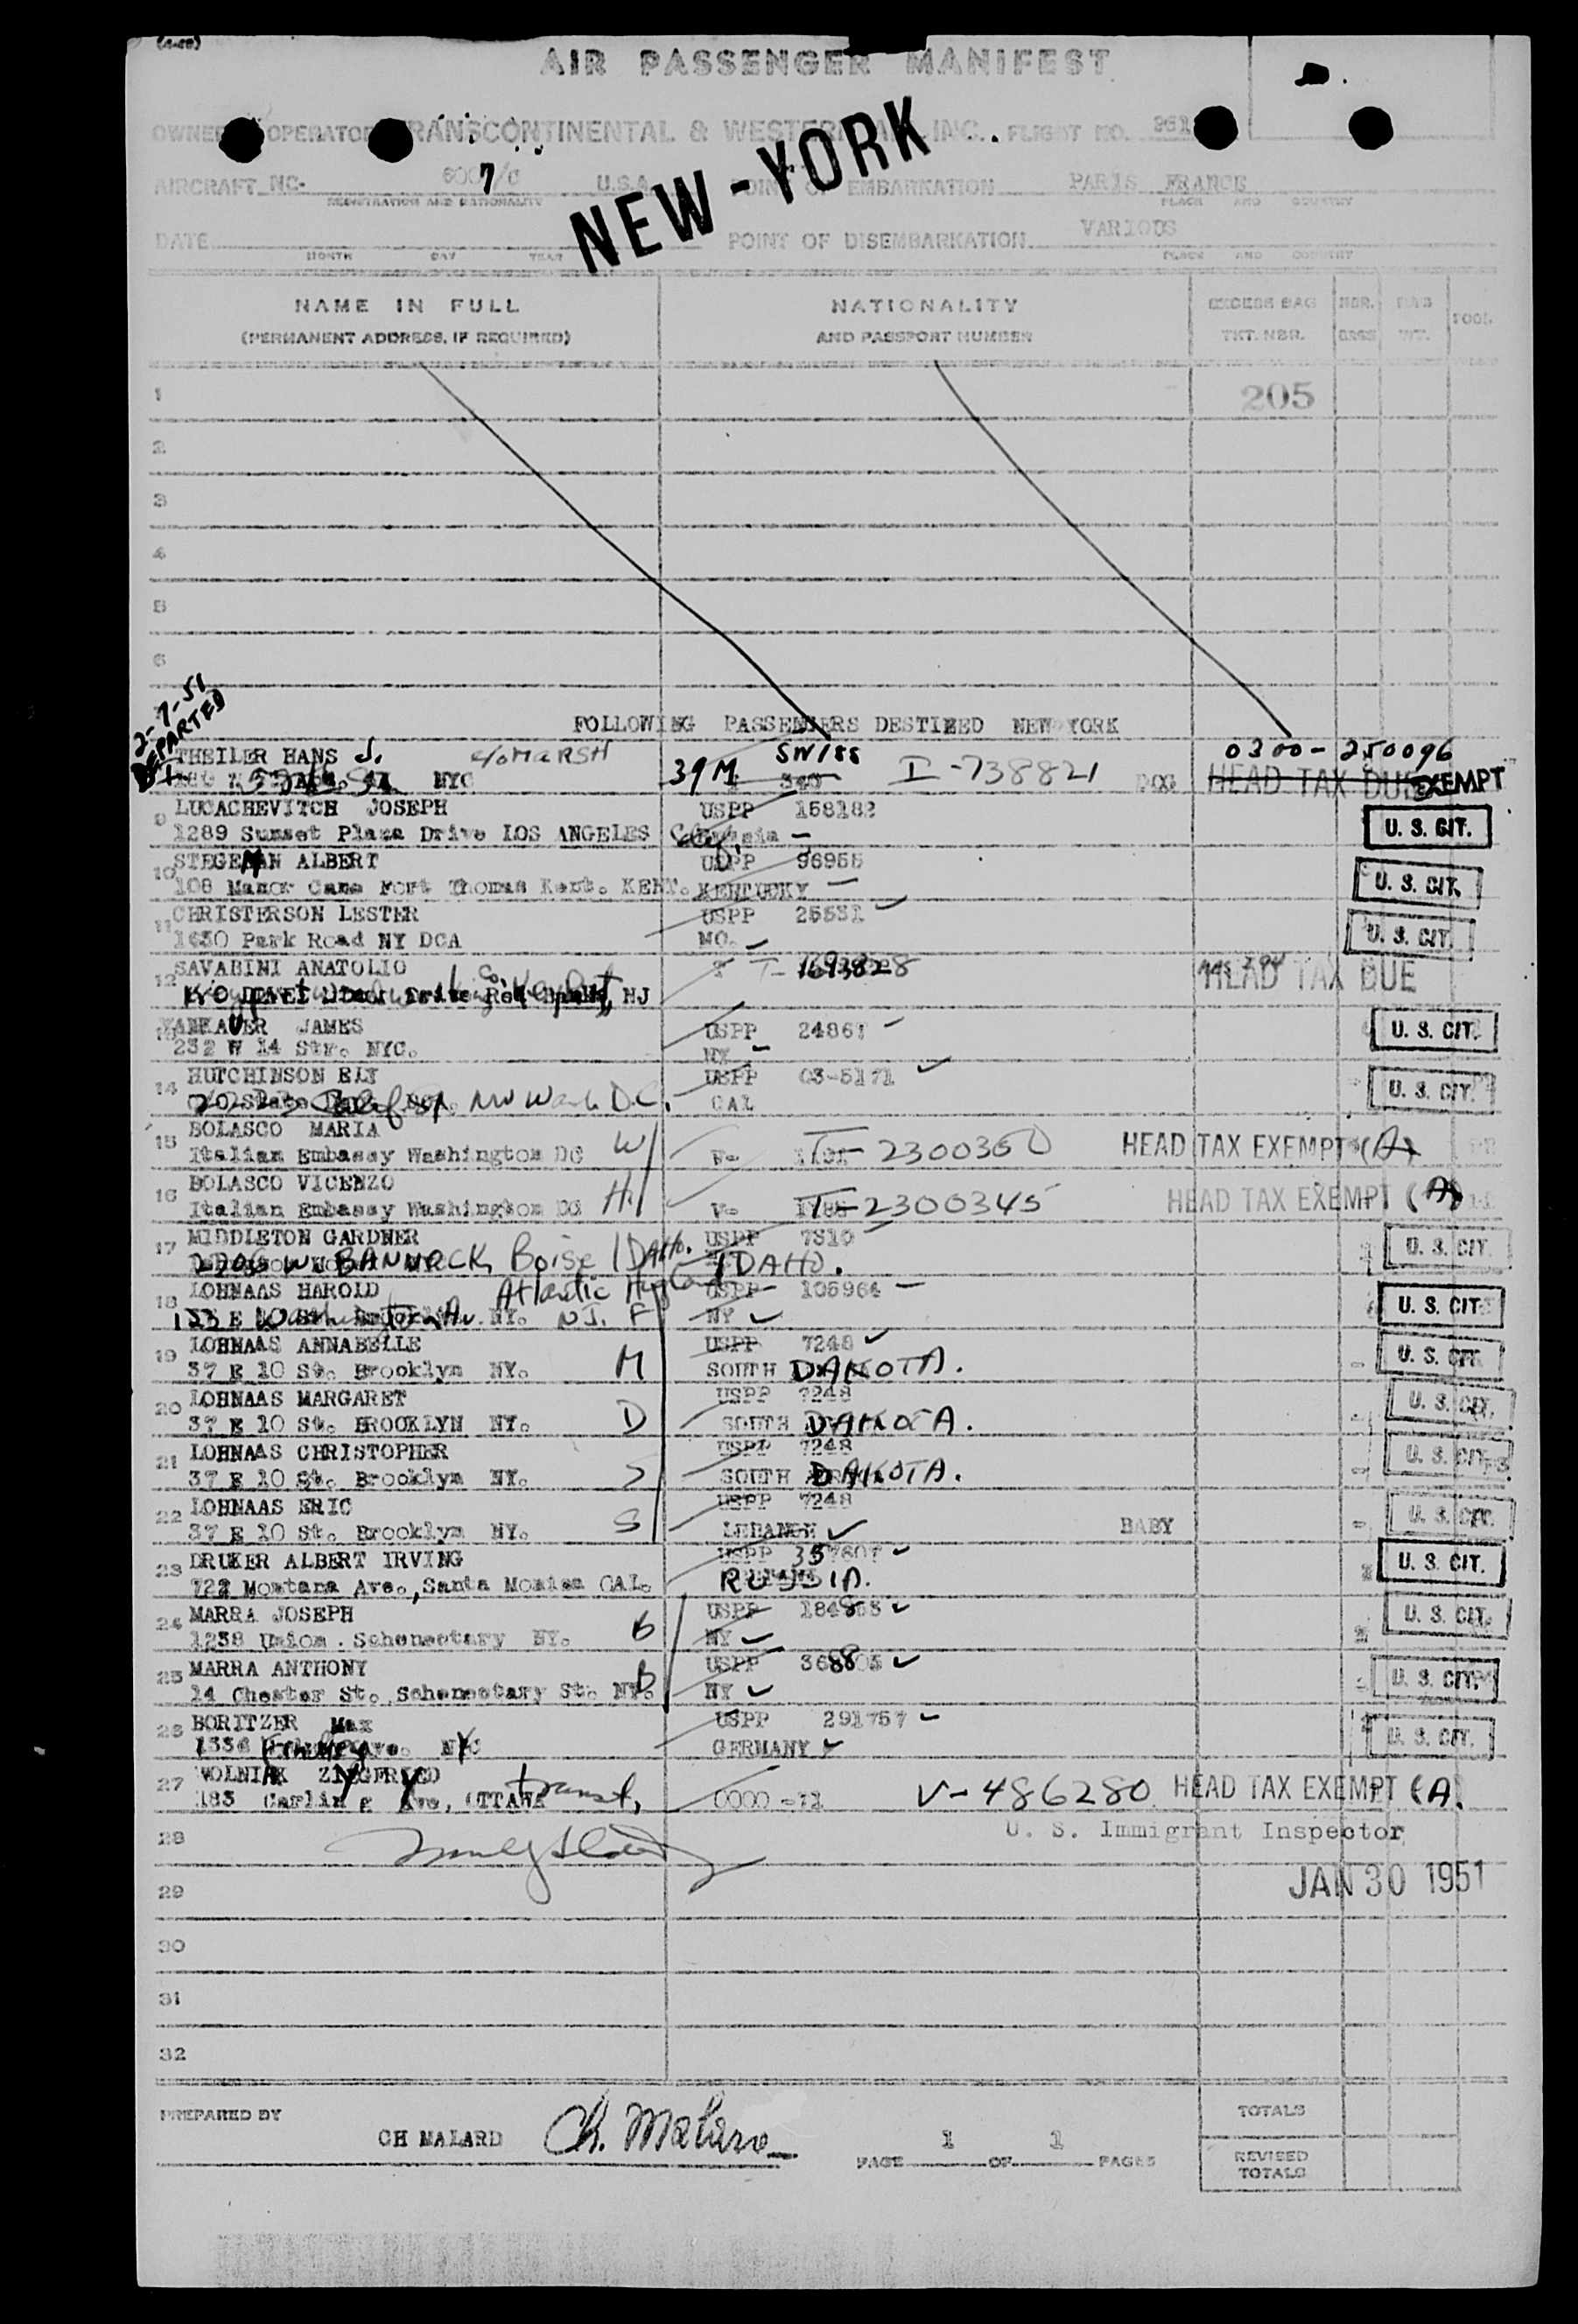 (4-48)
AIR PASSENGER MANIFEST
OPERATOR TRANSCONTINENTAL & WESTERN INC. FLIGHT NO. 961
AIRCRAFT NO. U.S.A. POINT OF EMBARKATION PARIS FRANCE
7
REGISTRATION AND NATIONALITY PLACE AND COUNTRY
NEW-YORK
DATE POINT OF DISEMBARKATION VARIOUS
MONTH DAY YEAR PLACE AND COUNTRY
NAME IN FULL NATIONALITY EXCESS BAG NBR.
(PERMANENT ADDRESS, IF REQUIRED) AND PASSPORT NUMBER TKT. NBR. WT.
1 205
2
3
4
5
6
2-7-51
DEPARTED
FOLLOWING PASSENGERS DESTINED NEW YORK
THEILER HANS J. c/o MARSH SWISS 0300-250096
NYC 39 M I-738821 HEAD TAX DUE EXEMPT
9 LUCACHEVITCH JOSEPH USPP 158182
1289 Sunset Plaza Drive LOS ANGELES Calif. U. S. CIT.
10 STEGEMAN ALBERT USPP 96955
108 Manor Cane Fort Thomas Kent. KENT. KENTUCKY U. S. CIT.
11 CHRISTERSON LESTER USPP 25531
1630 Park Road NY DCA MO. U. S. CIT.
12 SAVABINI ANATOLIO T-1693828 HEAD TAX DUE
Red Bank, NJ
13 JAMES USPP 24861 U. S. CIT.
232 W 14 Str. NYC. NY
14 HUTCHINSON ELY USPP 03-5171 U. S. CIT.
Calif St. NW Wash D.C. CAL
15 BOLASCO MARIA
Italian Embassy Washington DC W T-2300350 HEAD TAX EXEMPT (A)
16 BOLASCO VICENZO
Italian Embassy Washington DC H T-2300345 HEAD TAX EXEMPT (A)
17 MIDDLETON GARDNER USPP 7310 U. S. CIT.
2206 W. BANNOCK, Boise IDAHO. IDAHO.
18 LOHNAAS HAROLD Atlantic USPP 105964
NY. N.J. F NY U. S. CIT.
19 LOHNAAS ANNABELLE USPP 7248
37 E 10 St. Brooklyn NY. M SOUTH DAKOTA. U. S. CIT.
20 LOHNAAS MARGARET USPP 7248
37 E 10 St. BROOKLYN NY. D SOUTH DAKOTA. U. S. CIT.
21 LOHNAAS CHRISTOPHER USPP 7248
37 E 10 St. Brooklyn NY. S SOUTH DAKOTA. U. S. CIT.
22 LOHNAAS ERIC USPP 7248
37 E 10 St. Brooklyn NY. S LEBANON BABY U. S. CIT.
23 DRUKER ALBERT IRVING USPP 357607
722 Montana Ave., Santa Monica CAL. RUSSIA. U. S. CIT.
24 MARRA JOSEPH USPP 184853
1238 Union. Schenectary NY. B NY U. S. CIT.
25 MARRA ANTHONY USPP 368803
14 Chester St. Schenectary St. NY. B NY U. S. CIT.
26 BORITZER Max USPP 291757
1336 Ave. NYC GERMANY U. S. CIT.
27 WOLNIAK ZYGFRYD transit,
183 Carling Ave, OTTAWA 0000-71 V-486280 HEAD TAX EXEMPT (A.
28 U. S. Immigrant Inspector
29 JAN 30 1951
30
31
32
PREPARED BY TOTALS
CH MALARD Ch. Malard PAGE 1 OF 1 PAGES REVISED TOTALS